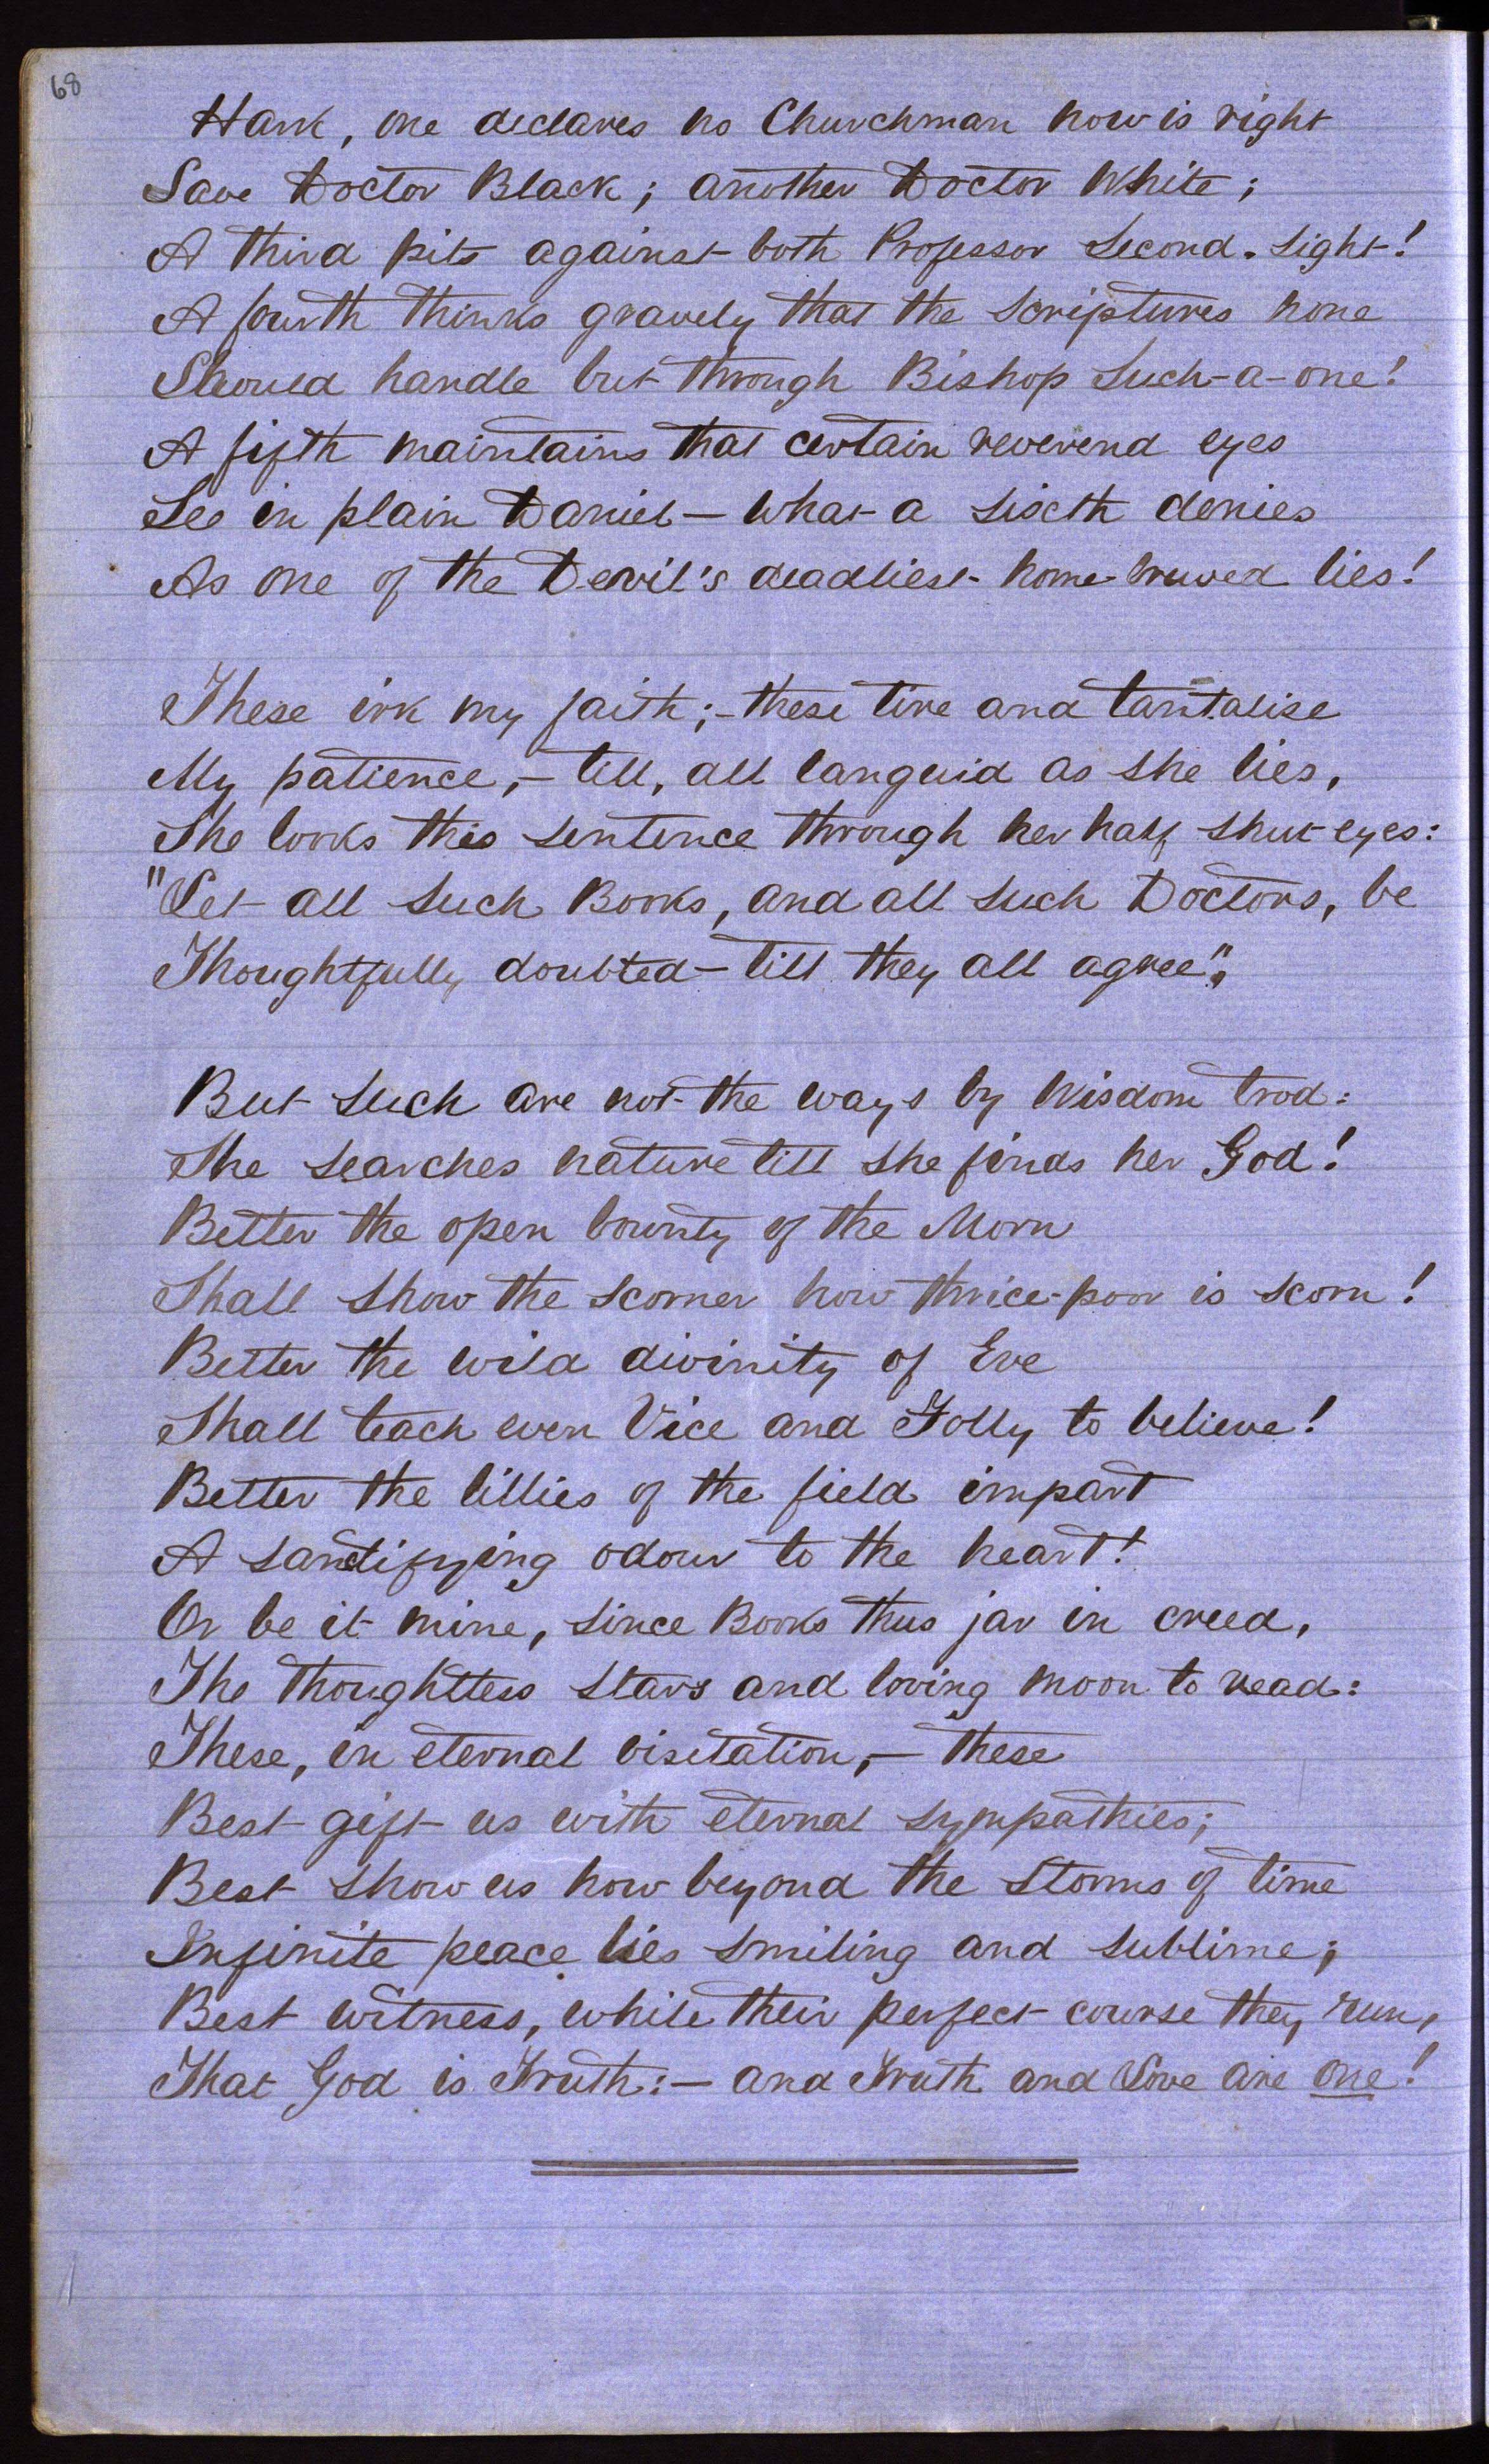 68
Hark, one declares no Churchman now is right
Save Doctor Black; another Doctor White;
A third pits against both Professor Second-Sight!
A fourth thinks gravely that the scriptures none
Should handle but through Bishop Such-a-one!
A fifth maintains that certain reverend eyes
See in plain Daniel — what a sixth denies
As one of the Devil's deadliest home-brewed lies!
These irk my faith;- these tire and tantalise
My patience, — till, all languid as she lies,
She looks this sentence through her half shut eyes:
"Let all such Books, and all such Doctors, be
Thoughtfully doubted — till they all agree".
But such are not the ways by Wisdom trod:
She searches nature till she finds her God!
Better the open bounty of the Morn
Shall show the scorner how thrice-poor is scorn!
Better the wild divinity of Eve
Shall teach even Vice and Folly to believe!
Better the lillies of the field impart
A sanctifying odour to the heart!
Or be it mine, since Books thus jar in creed,
The thoughttess stars and loving moon to read:
These, in eternal visitation, — these
Best gift us with eternal sympathies;
Best show us how beyond the storms of time
Infinite peace lies smiling and sublime;
Best witness, while their perfect course they run,
That God is Truth: — and Truth and Love are one!